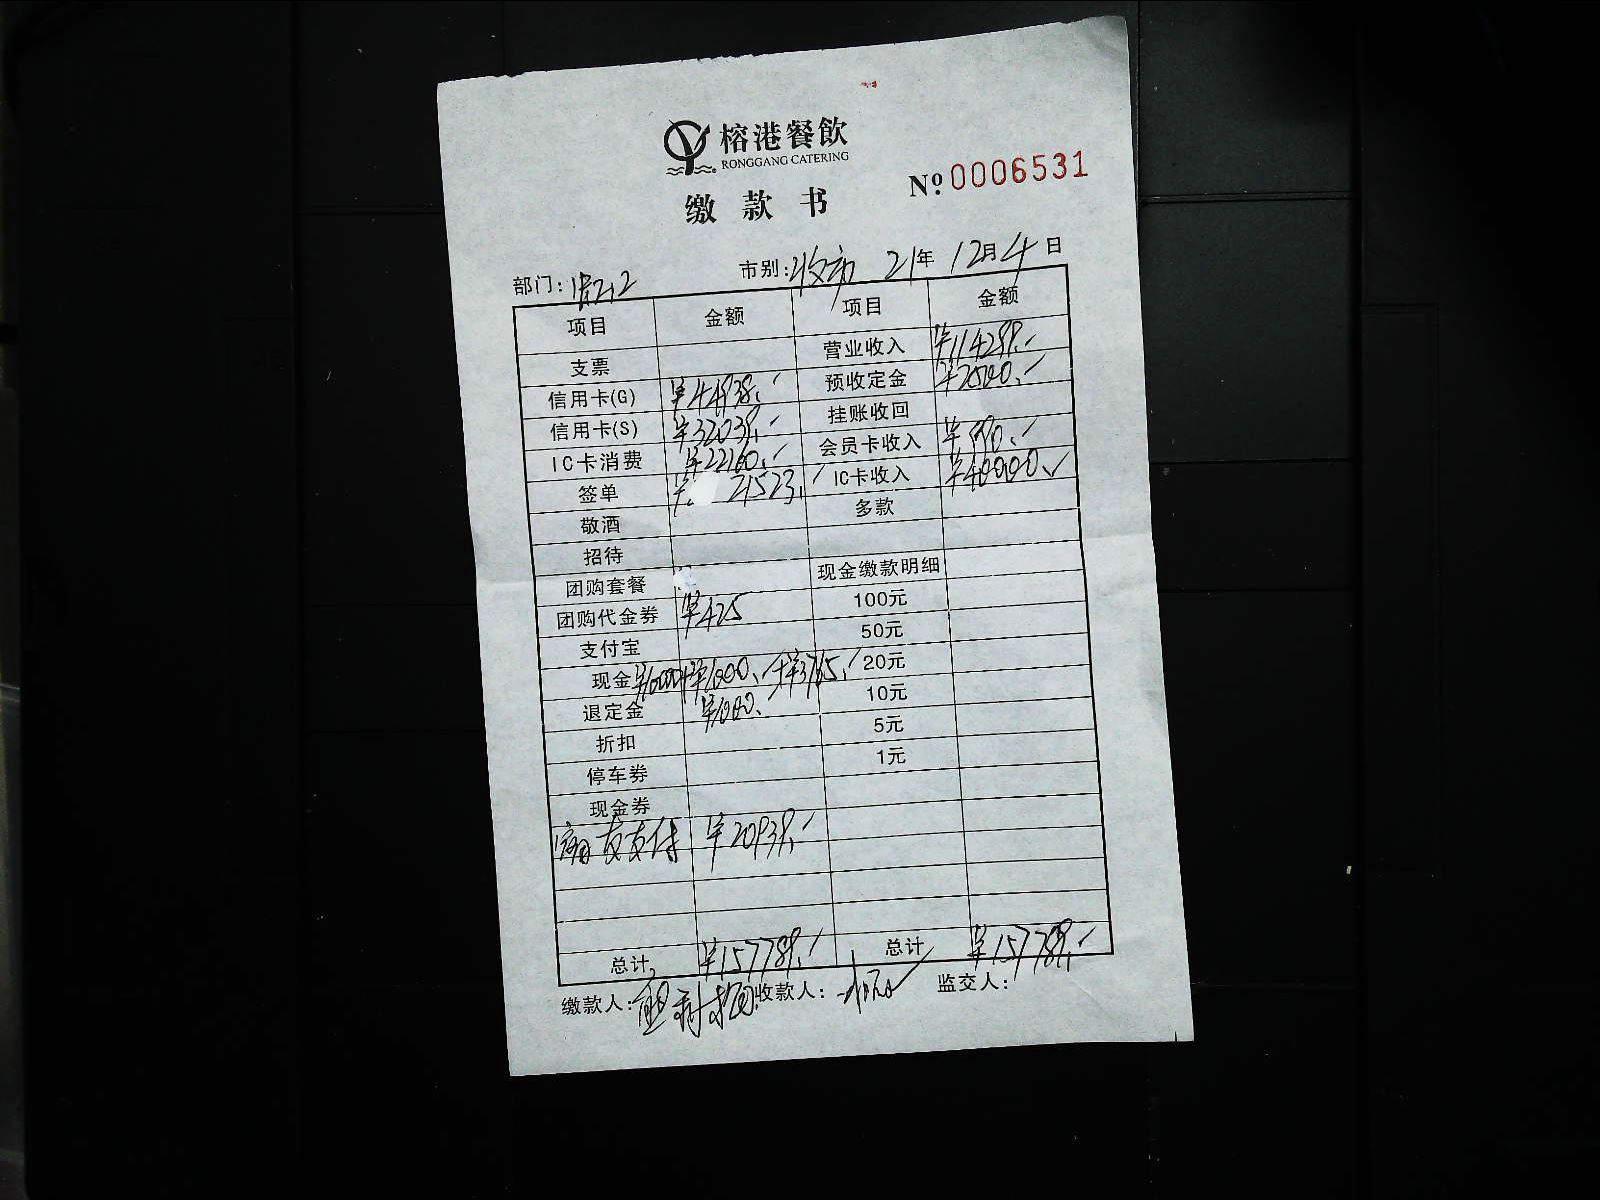 榕港餐飲
RONGGANG CATERING
缴款书
№ 0006531
部门: 市别: 收市 21年 12月 4日
项目 金额 项目 金额
支票 营业收入 ¥114299.
信用卡(G) ¥44938. 预收定金 ¥2500.
信用卡(S) ¥32039. 挂账收回
IC卡消费 ¥22160. 会员卡收入 ¥990.
签单 ¥21523. IC卡收入 ¥40000.
敬酒 多款
招待
团购套餐 现金缴款明细
团购代金券 ¥425 100元
支付宝 50元
现金 ¥10000+¥1000.+¥3765. 20元
退定金 ¥1000. 10元
折扣 5元
停车券 1元
现金券
支付 ¥20939.
总计 ¥157789. 总计 ¥157789.
缴款人: 收款人: 监交人: